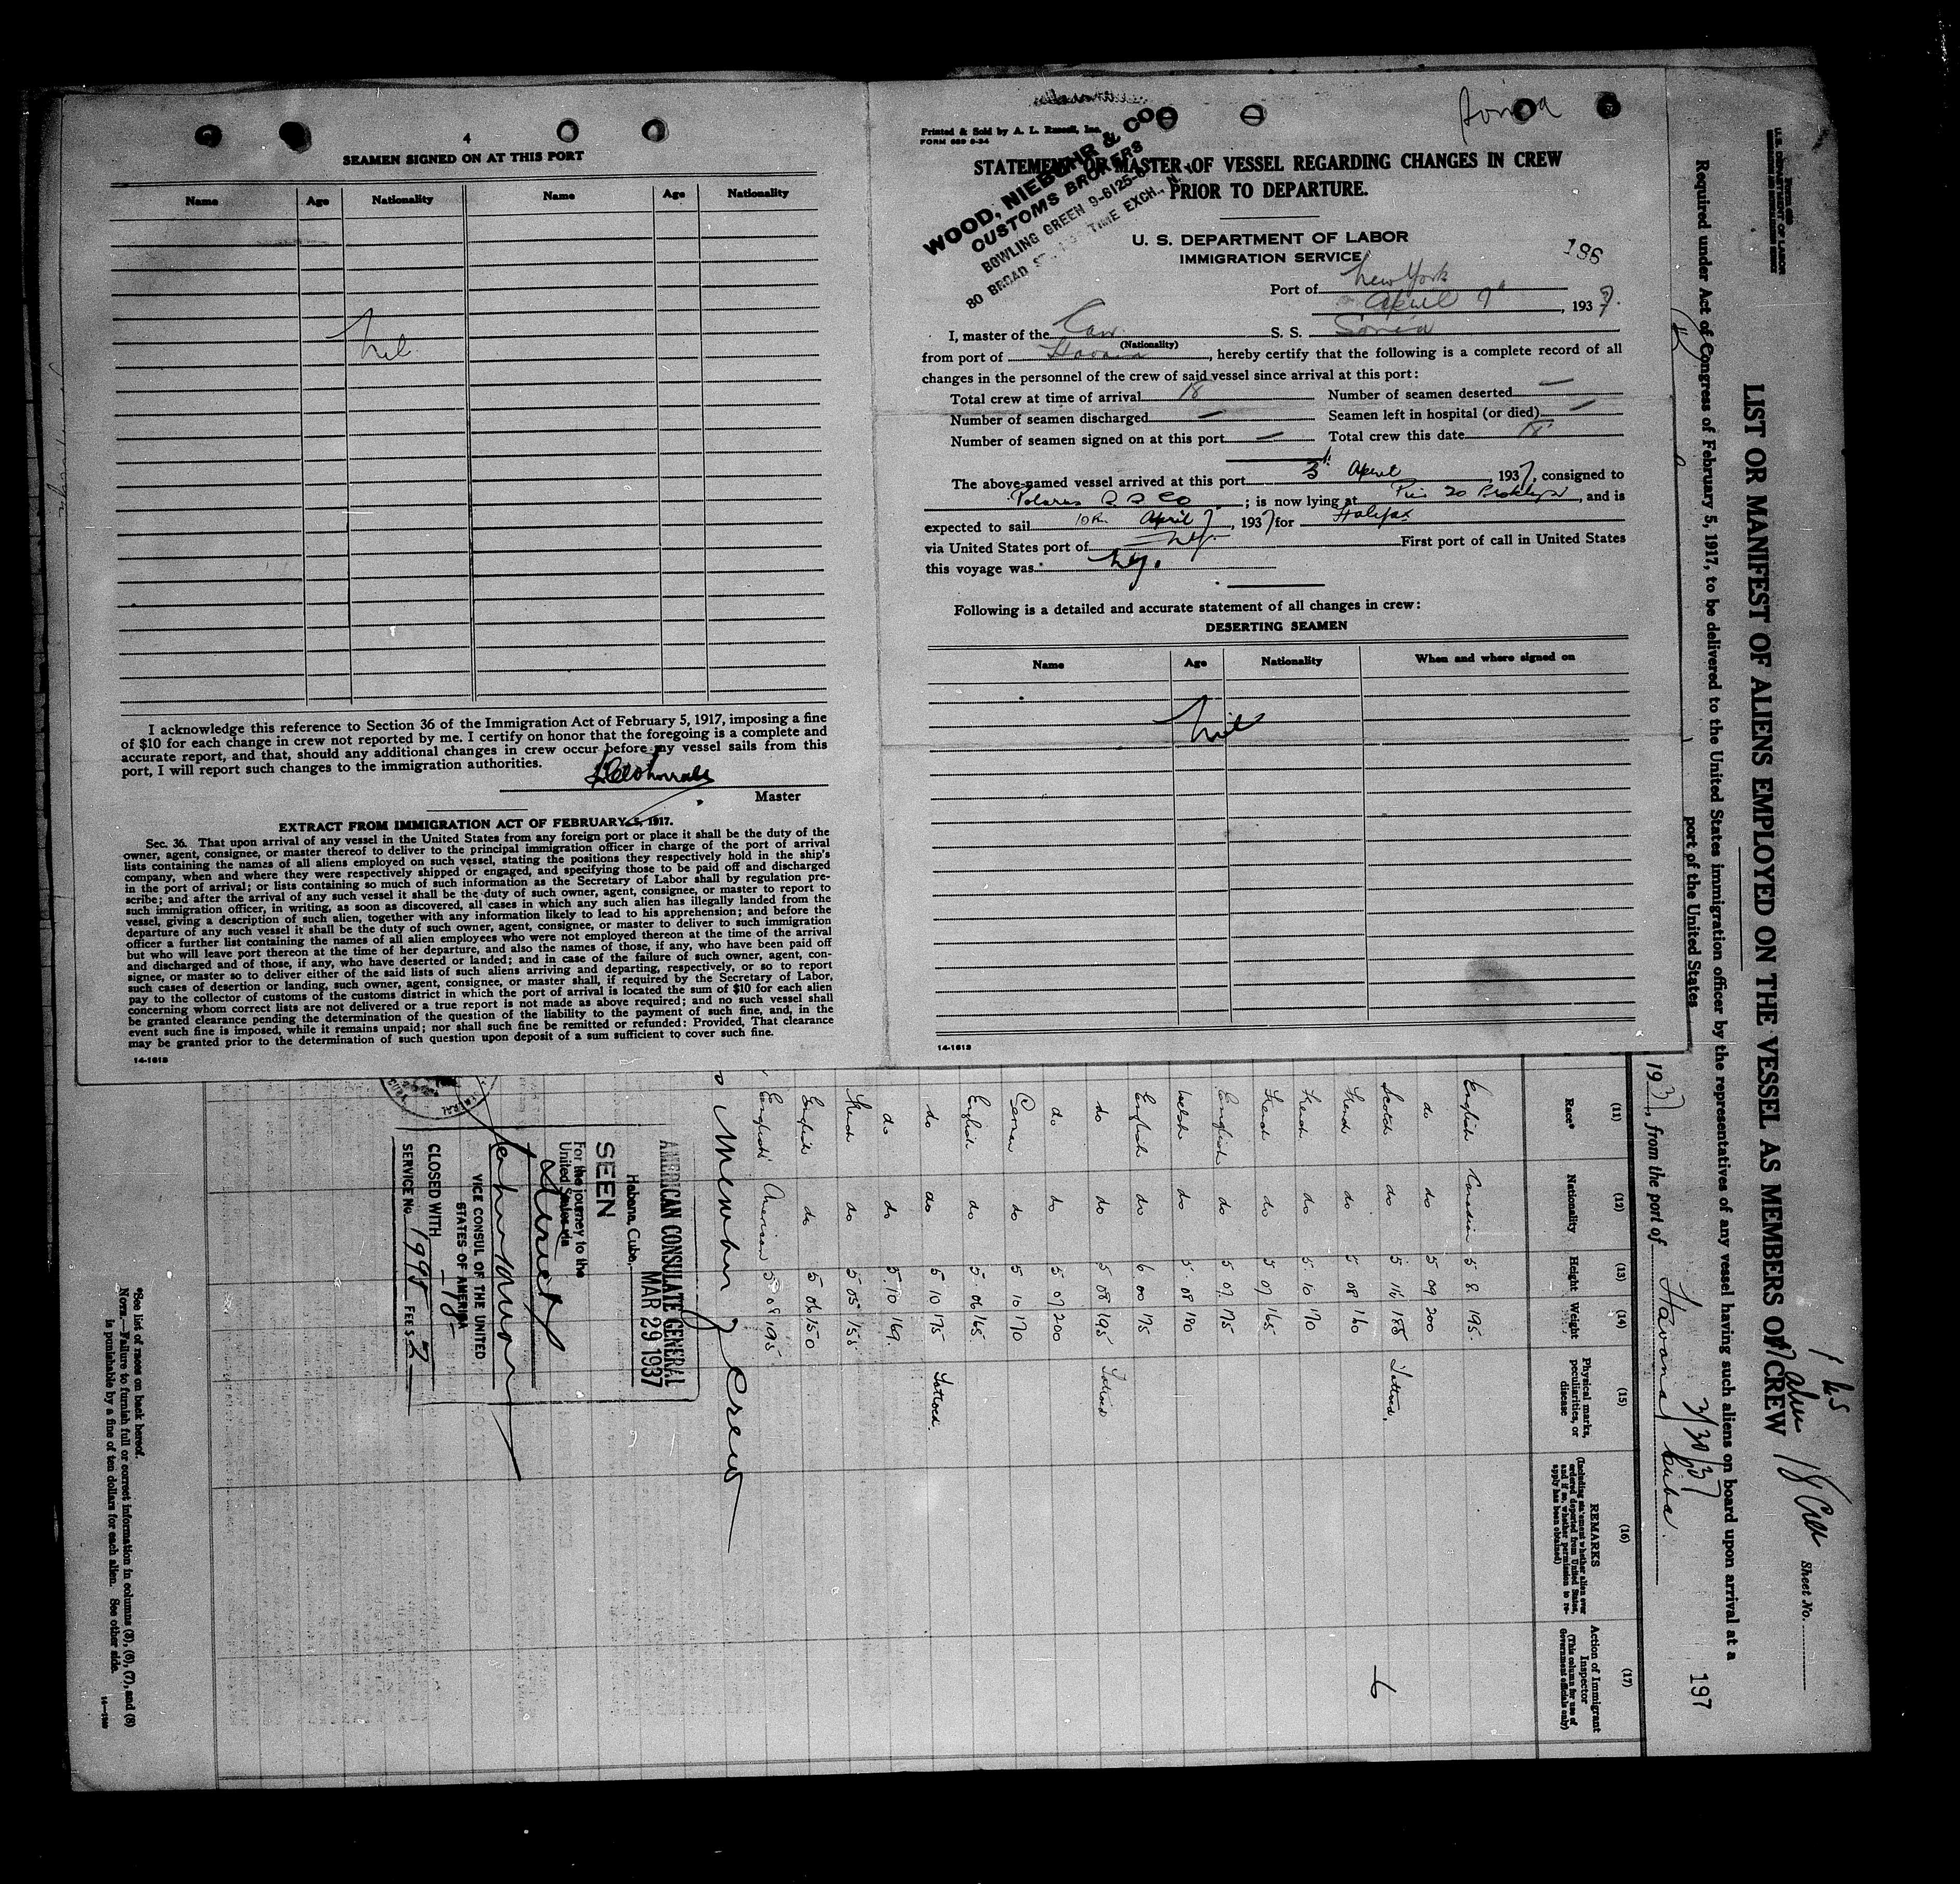 4
SEAMEN SIGNED ON AT THIS PORT
Name Age Nationality Name Age Nationality
Nil
I acknowledge this reference to Section 36 of the Immigration Act of February 5, 1917, imposing a fine
of $10 for each change in crew not reported by me. I certify on honor that the foregoing is a complete and
accurate report, and that, should any additional changes in crew occur before my vessel sails from this
port, I will report such changes to the immigration authorities.
Master
EXTRACT FROM IMMIGRATION ACT OF FEBRUARY 5, 1917.
Sec. 36. That upon arrival of any vessel in the United States from any foreign port or place it shall be the duty of the
owner, agent, consignee, or master thereof to deliver to the principal immigration officer in charge of the port of arrival
lists containing the names of all aliens employed on such vessel, stating the positions they respectively hold in the ship's
company, when and where they were respectively shipped or engaged, and specifying those to be paid off and discharged
in the port of arrival; or lists containing so much of such information as the Secretary of Labor shall by regulation pre-
scribe; and after the arrival of any such vessel it shall be the duty of such owner, agent, consignee, or master to report to
such immigration officer, in writing, as soon as discovered, all cases in which any such alien has illegally landed from the
vessel, giving a description of such alien, together with any information likely to lead to his apprehension; and before the
departure of any such vessel it shall be the duty of such owner, agent, consignee, or master to deliver to such immigration
officer a further list containing the names of all alien employees who were not employed thereon at the time of the arrival
but who will leave port thereon at the time of her departure, and also the names of those, if any, who have been paid off
and discharged and of those, if any, who have deserted or landed; and in case of the failure of such owner, agent, con-
signee, or master so to deliver either of the said lists of such aliens arriving and departing, respectively, or so to report
such cases of desertion or landing, such owner, agent, consignee, or master shall, if required by the Secretary of Labor,
pay to the collector of customs of the customs district in which the port of arrival is located the sum of $10 for each alien
concerning whom correct lists are not delivered or a true report is not made as above required; and no such vessel shall
be granted clearance pending the determination of the question of the liability to the payment of such fine, and, in the
event such fine is imposed, while it remains unpaid; nor shall such fine be remitted or refunded: Provided, That clearance
may be granted prior to the determination of such question upon deposit of a sum sufficient to cover such fine.
14-1613
Sonia
Printed & Sold by A. L. Russell, Inc.
FORM 689 9-34
WOOD, NIEBUHR & CO
CUSTOMS BROKERS
BOWLING GREEN 9-6125-6
80 BROAD ST. TIME EXCH., N.
STATEMENT OF MASTER OF VESSEL REGARDING CHANGES IN CREW
PRIOR TO DEPARTURE.
U. S. DEPARTMENT OF LABOR
IMMIGRATION SERVICE
196
Port of New York
April 7, 1937.
I, master of the Can. (Nationality) S. S. Sonia
from port of Havana, hereby certify that the following is a complete record of all
changes in the personnel of the crew of said vessel since arrival at this port:
Total crew at time of arrival 18 Number of seamen deserted —
Number of seamen discharged — Seamen left in hospital (or died) —
Number of seamen signed on at this port — Total crew this date 18
The above-named vessel arrived at this port 3 April, 1937, consigned to
Polarus S S Co; is now lying at Pier 20 Brooklyn, and is
expected to sail 10 April 7, 1937 for Halifax
via United States port of First port of call in United States
this voyage was N.Y.
Following is a detailed and accurate statement of all changes in crew:
DESERTING SEAMEN
Name Age Nationality When and where signed on
Nil
14-1613
U. S. DEPARTMENT OF LABOR
Sheet No.
18 Crew
LIST OR MANIFEST OF ALIENS EMPLOYED ON THE VESSEL AS MEMBERS OF CREW
Required under Act of Congress of February 5, 1917, to be delivered to the United States immigration officer by the representatives of any vessel having such aliens on board upon arrival at a
port of the United States
197
3/30/37
1937, from the port of Havana, Cuba.
(11) (12) (13) (14) (15) (16) (17)
Race* Nationality Height Weight Physical marks, peculiarities, or disease REMARKS (Including statement whether alien ever ordered deported from United States, and if so, whether permission to re-apply has been obtained) Action of Immigrant Inspector (This column for use of Government officials only)
English Canadian 5 8 195
do do 5 09 200
Scotch do 5 185 Tattood.
French do 5 08 160
French do 5 10 170
French do 5 07 165
English do 5 07 175
Welsh do 5 08 180
English do 6 00 175
do do 5 08 195 Tattood
do do 5 07 200
do 5 10 170
English do 5 06 165
do do 5 10 175 Tattoed.
do do 5 10 169
French do 5 05 155
English do 5 06 150
English American 5 08 195
Member of Crew
AMERICAN CONSULATE GENERAL
MAR 29 1937
Habana, Cuba,
SEEN
For the journey to the
United States via
direct
VICE CONSUL OF THE UNITED
STATES OF AMERICA
CLOSED WITH —18—
SERVICE No. 1995 FEE $ 2
*See list of races on back hereof.
NOTE.—Failure to furnish full or correct information in columns (3), (6), (7), and (8)
is punishable by a fine of ten dollars for each alien. See other side.